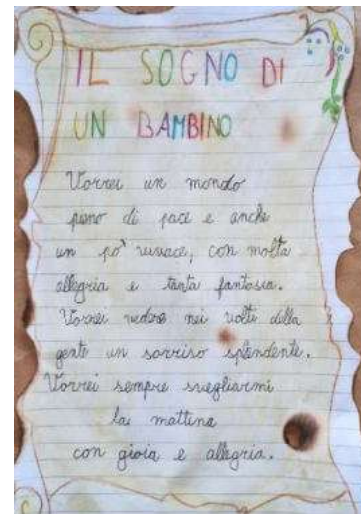 IL SOGNO DI
UN BAMBINO
Vorrei un mondo
pieno di pace e anche
un po' vivace, con molta
allegria e tanta fantasia.
Vorrei vedere nei volti della
gente un sorriso splendente.
Vorrei sempre svegliarmi
la mattina
con gioia e allegria.